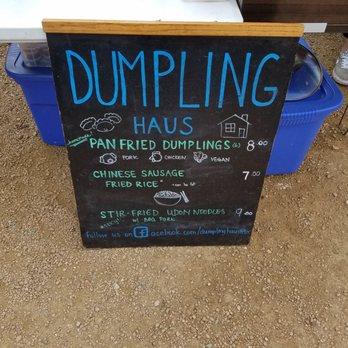 DUMPLING
HAUS
PAN FRIED DUMPLINGS 8.00
PORK CHICKEN VEGAN
CHINESE SAUSAGE 7.00
FRIED RICE
STIR-FRIED UDON NOODLES 9.00
W/ BBQ PORK
follow us on facebook.com/dumplinghaus